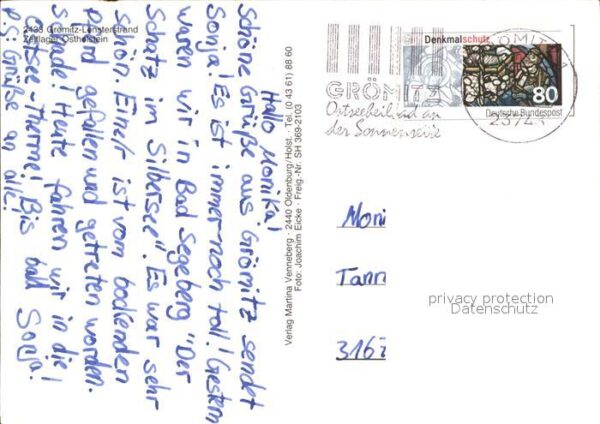 2433 Grömitz-Lensterstrand
Zeltlager Ostholstein
Hallo Monika!
Schöne Grüße aus Grömitz sendet
Sonja! Es ist immernoch toll! Gestern
waren wir in Bad Segeberg "Der
Schatz im Silbersee". Es war sehr
schön. Einer ist vom bockenden
Pferd gefallen und getreten worden.
Schade! Heute fahren wir in die
Ostsee-Therme! Bis bald Sonja!
P.S. Grüße an alle!
Verlag Martina Venneberg · 2440 Oldenburg/Holst. · Tel. (0 43 61) 88 60
Foto: Joachim Eicke · Freig.-Nr. SH 369-2103
GRÖMITZ
Ostseeheilbad an
der Sonnenseite
GRÖMITZ 1
23743
Denkmalschutz
80
Deutsche Bundespost
Moni
Tann
3167
privacy protection
Datenschutz